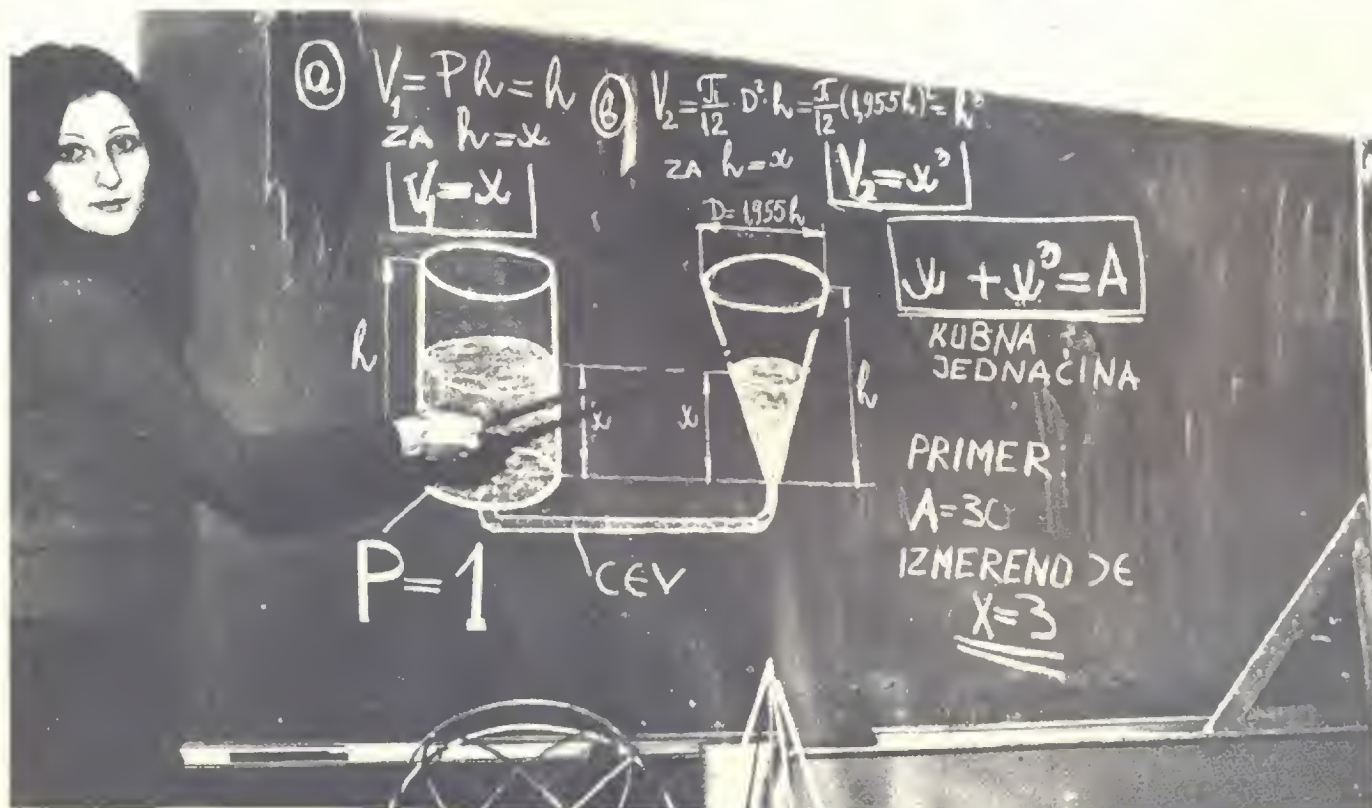 a V₁=Ph=h
ZA h=x
V₁=x
b V₂=π/12·D²·h=π/12(1,955h)²=h³
ZA h=x
V₂=x³
D=1,955h
x+x³=A
KUBNA
JEDNAČINA
h
x
x
h
PRIMER:
A=30
IZMERENO JE
X=3
P=1
CEV